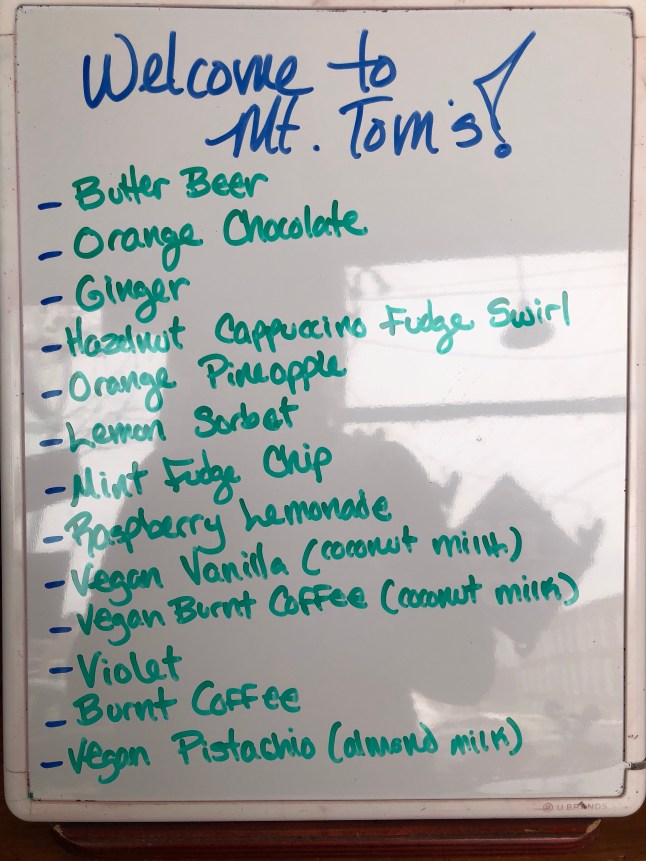 Welcome to
Mt. Tom's!
- Butter Beer
- Orange Chocolate
- Ginger
- Hazelnut Cappuccino Fudge Swirl
- Orange Pineapple
- Lemon Sorbet
- Mint Fudge Chip
- Raspberry Lemonade
- Vegan Vanilla (coconut milk)
- Vegan Burnt Coffee (coconut milk)
- Violet
- Burnt Coffee
- Vegan Pistachio (almond milk)
U BRANDS